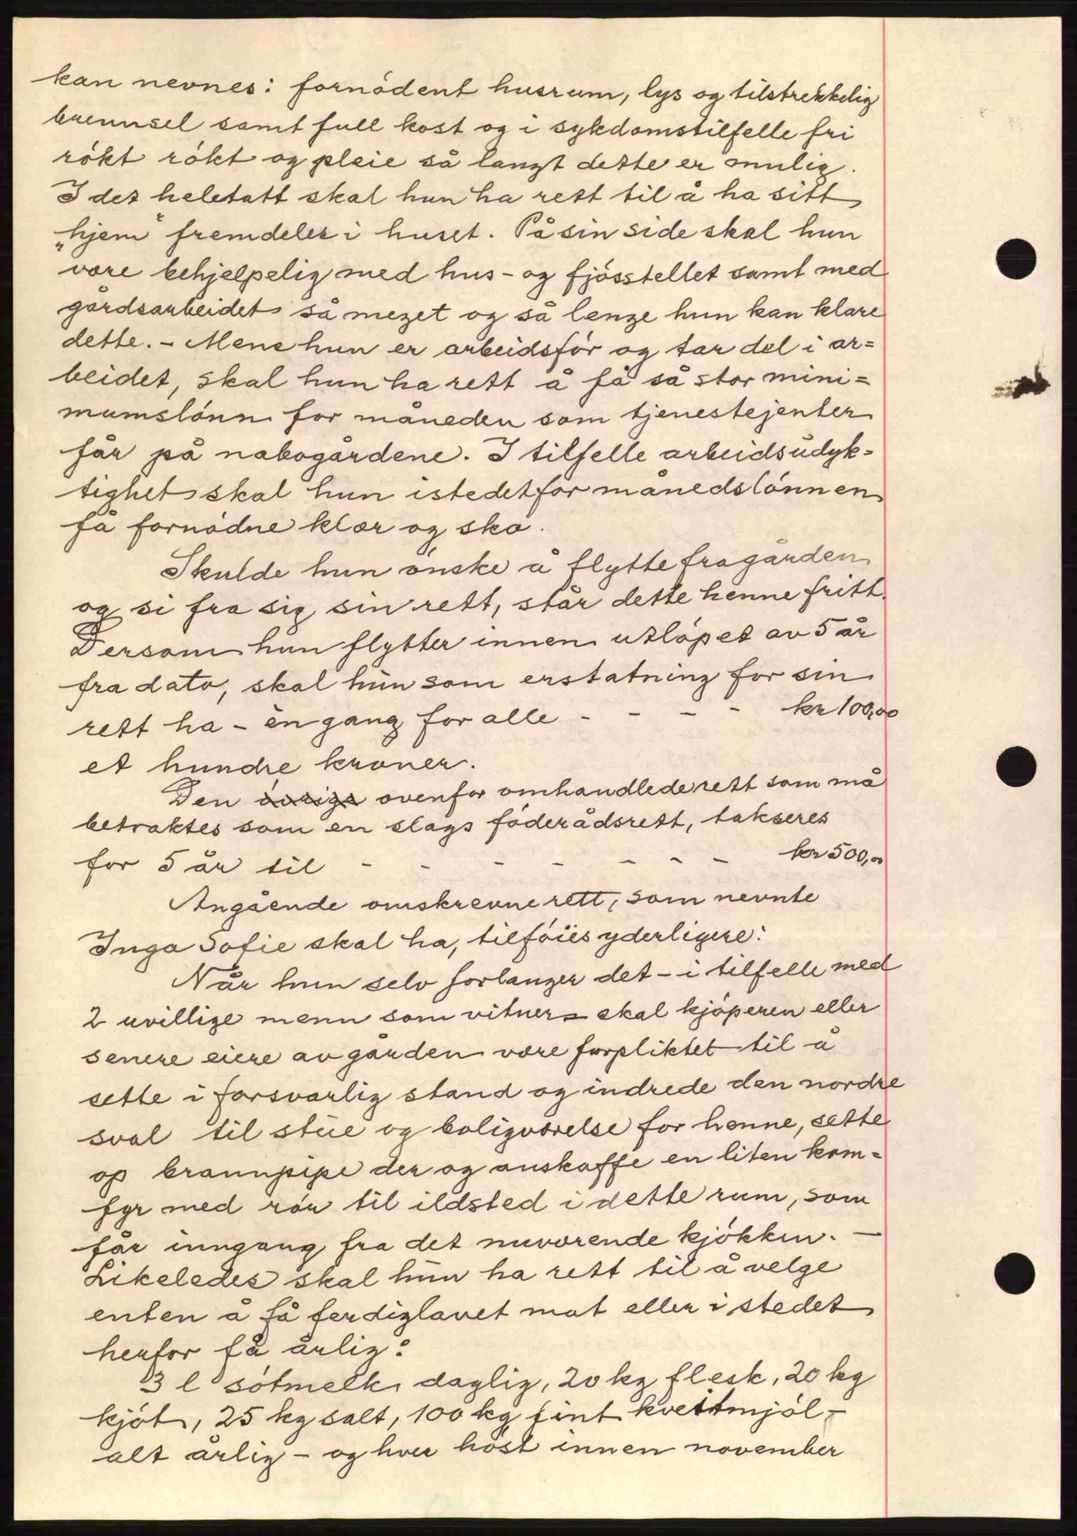 kan nevnes: fornódent husrum, lys og tilstrekkelig
brennsel samt full kost og i sykdomstilfelle fri
rókt rókt og pleie så langt dette er mulig.
I det heletatt skal hun ha rett til å ha sitt
„hjem" fremdeles i huset. På sin side skal hun
være behjelpelig med hus- og fjósstellet samt med
gårdsarbeidet så meget og så lenge hun kan klare
dette. - Mens hun er arbeidsfór og tar del i ar=
beidet, skal hun ha rett å få så stor mini=
mumslónn for måneden som tjenestejenter
får på nabogårdene. I tilfelle arbeidsudyk=
tighet skal hun istedetfor månedslónnen
få fornódne klær og sko.
Skulde hun ónske å flytte fra gården
og si fra sig sin rett, står dette henne fritt.
Dersom hun flytter innen utlópet av 5 år
fra dato, skal hun som erstatning for sin
rett ha - èn gang for alle - - - - kr 100,00
et hundre kroner.
Den óvrige ovenfor omhandlede rett som må
betraktes som en slags fóderådsrett, takseres
for 5 år til - - - - - - - kr 500,00
Angående omskrevne rett, som nevnte
Inga Sofie skal ha, tilfóies yderligere:
Når hun selv forlanger det - i tilfelle med
2 uvillige menn som vitner - skal kjóperen eller
senere eiere av gården være forpliktet til å
sette i forsvarlig stand og indrede den nordre
sval til stue og boligværelse for henne, sette
op brannpipe der og anskaffe en liten kom=
fyr med rór til ildsted i dette rum, som
får inngang fra det nuværende kjókken. -
Likeledes skal hun ha rett til å velge
enten å få ferdiglavet mat eller i stedet
herfor få årlig:
3 l sótmelk daglig, 20 kg flesk, 20 kg
kjót, 25 kg salt, 100 kg fint kveitmjól -
alt årlig - og hver hóst innen november